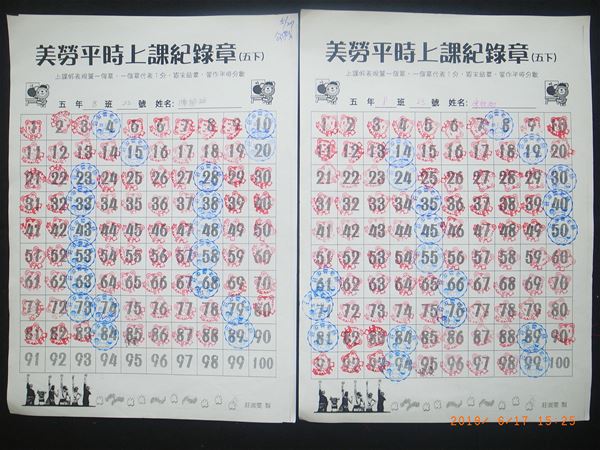 美勞平時上課紀錄章(五下)
上課好表現蓋一個章，一個章代表1分，期末結算，當作平時分數
五 年 8 班 22 號 姓名:
1 2 3 4 5 6 7 8 9 10
11 12 13 14 15 16 17 18 19 20
21 22 23 24 25 26 27 28 29 30
31 32 33 34 35 36 37 38 39 40
41 42 43 44 45 46 47 48 49 50
51 52 53 54 55 56 57 58 59 60
61 62 63 64 65 66 67 68 69 70
71 72 73 74 75 76 77 78 79 80
81 82 83 84 85 86 87 88 89 90
91 92 93 94 95 96 97 98 99 100
美勞平時上課紀錄章(五下)
上課好表現蓋一個章，一個章代表1分，期末結算，當作平時分數
五 年 班 23 號 姓名:
1 2 3 4 5 6 7 8 9 10
11 12 13 14 15 16 17 18 19 20
21 22 23 24 25 26 27 28 29 30
31 32 33 34 35 36 37 38 39 40
41 42 43 44 45 46 47 48 49 50
51 52 53 54 55 56 57 58 59 60
61 62 63 64 65 66 67 68 69 70
71 72 73 74 75 76 77 78 79 80
81 82 83 84 85 86 87 88 89 90
91 92 93 94 95 96 97 98 99 100
2010/ 6/17 15:25